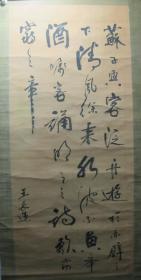 蘇子與客泛舟遊於赤壁
下清風徐來水波不興舉
酒嘱客誦明月之詩歌窈
窕之章
王